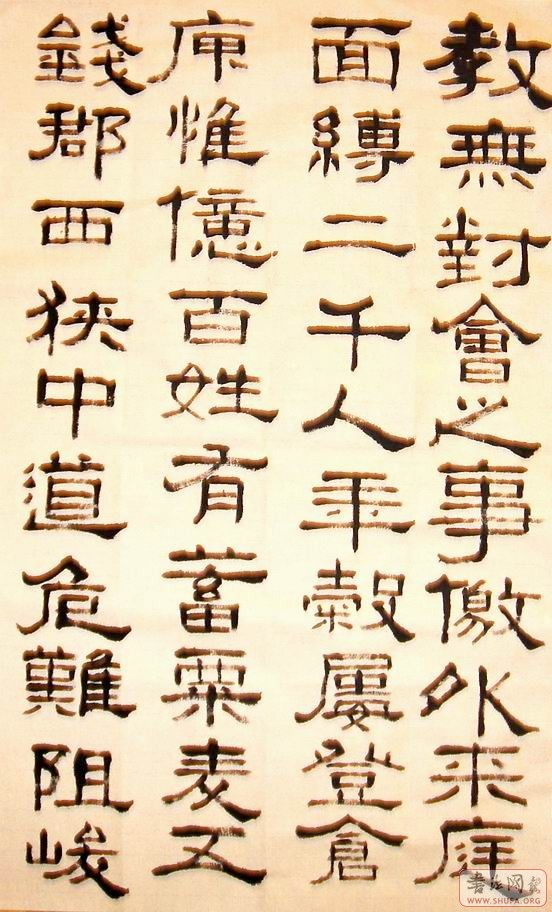 教無對會之事儌外来庭
面縛二千人年穀屢登倉
庾惟億百姓有蓄粟麦五
錢郡西狹中道危難阻峻
WWW.SHUFA.ORG